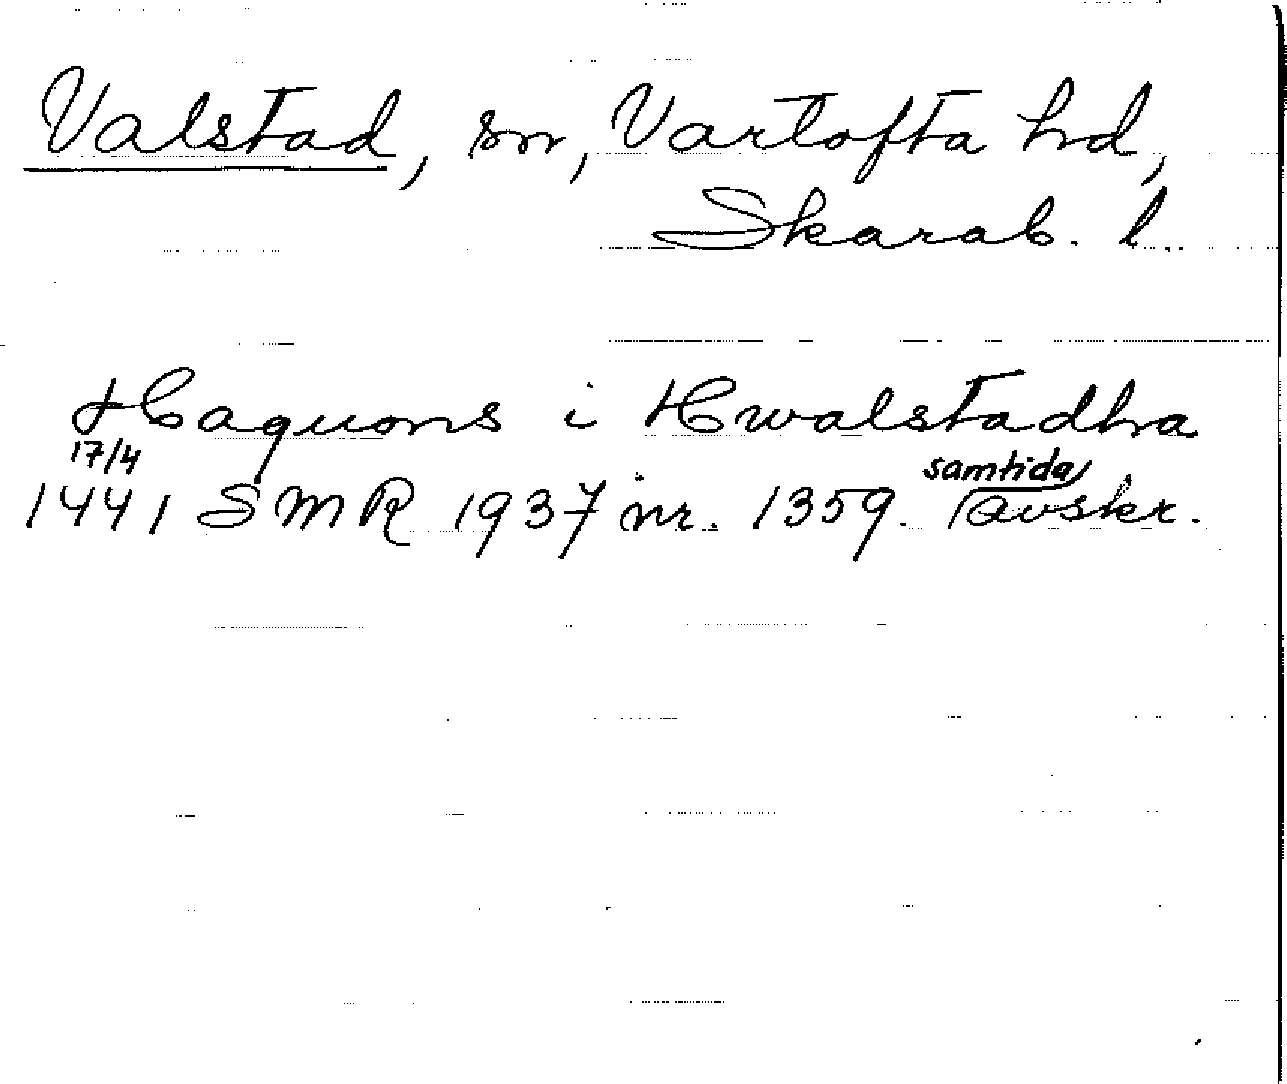 Valstad, sn, Vartofta hd,
Skarab. l.
Haquons i Hwalstadha
17/4 samtida
1441 SMR 1937 nr. 1359. avskr.